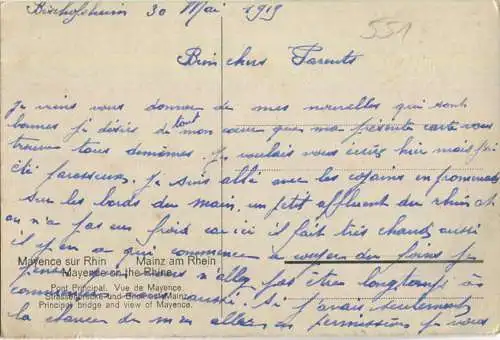 Bischofsheim 30 Mai 1919
551
Bien chers Parents
Je viens vous donner de mes nouvelles qui sont
bonnes je désire de tout mon cœur que ma présente carte vous
trouve tous de mêmes. Je voulais vous écrire hier mais j'ai
été paresseux. Je suis allé avec les copains en promenade
sur les bords du main, un petit affluent du rhin et
on n'a pas eu froid car ici il fait très chaud aussi
il y en a qui commence a couper du foins je
Mayence sur Rhin Mainz am Rhein
Mayence on the Rhine
pense n'allez pas être longtemps à
Pont Principal. Vue de Mayence.
Strassenbrücke und Blick auf Mainz
commencer vous aussi. Si j'avais seulement
Principal bridge and view of Mayence.
la chance de m'en aller en permission je vous